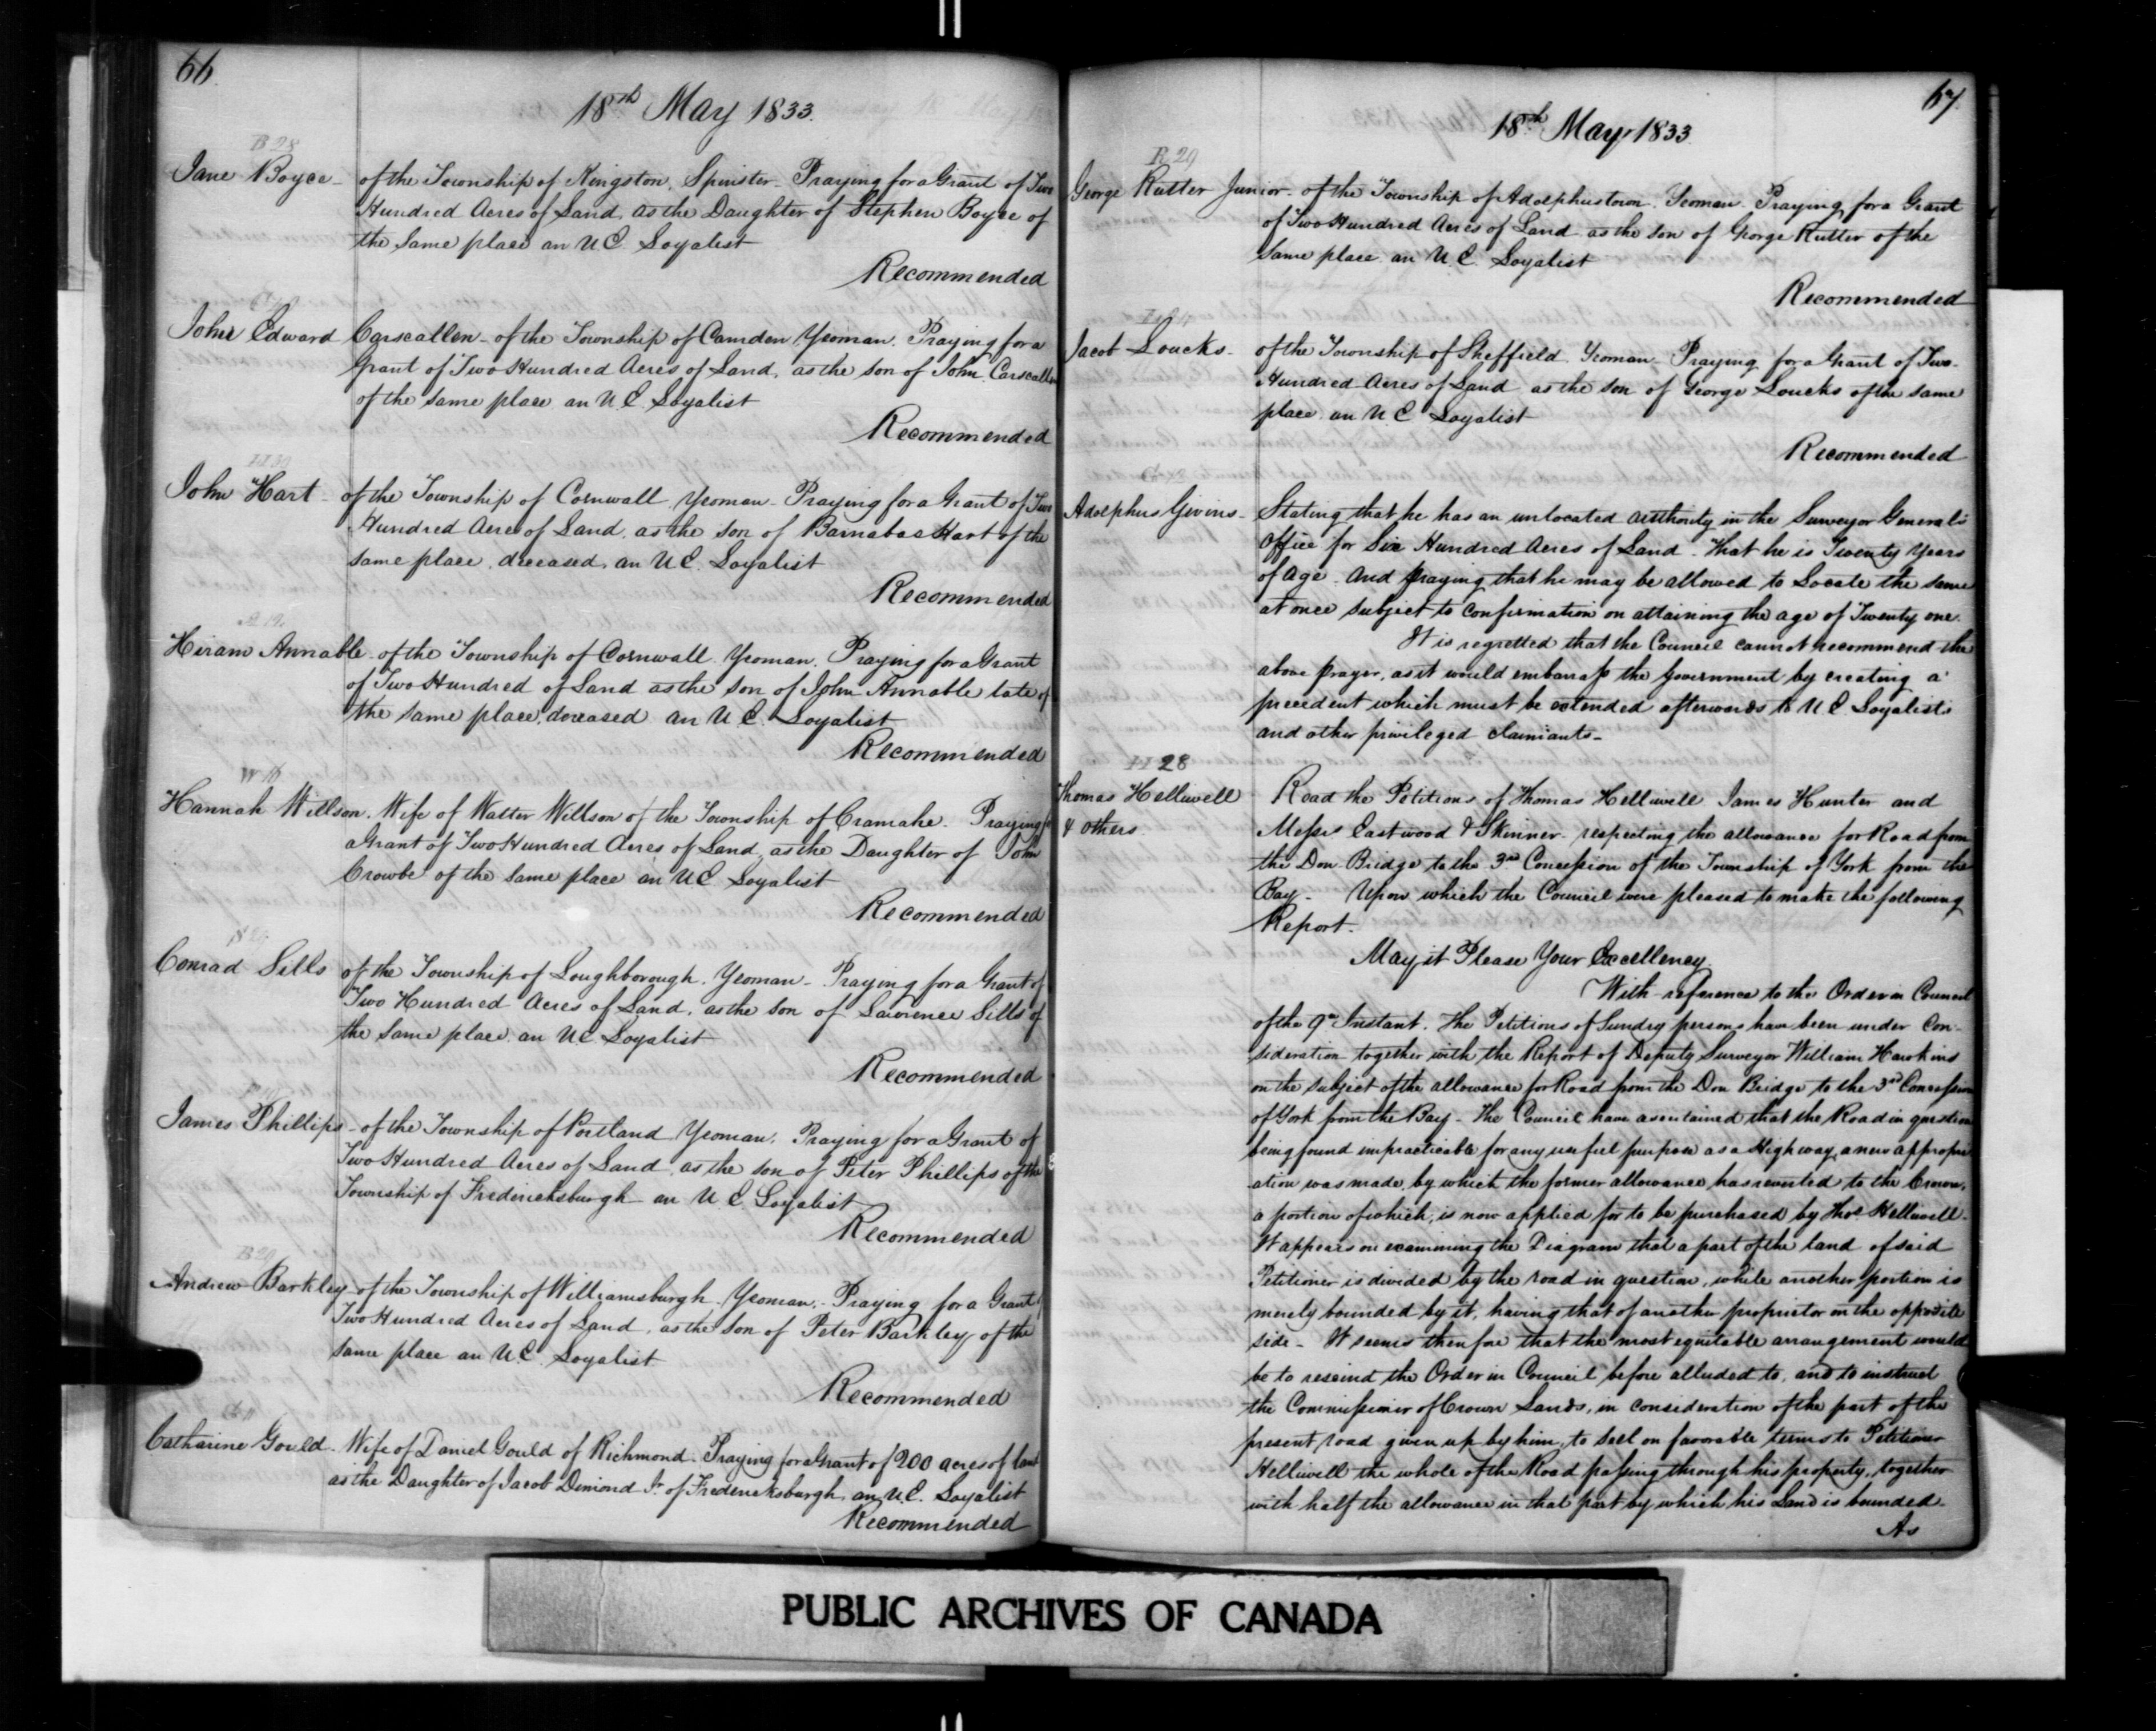 66
18th May 1833.
B 28
Jane Boyce - of the Township of Kingston, Spinster - Praying for a Grant of Two
Hundred Acres of Land, as the Daughter of Stephen Boyce of
the same place an U.E. Loyalist
Recommended
John Edward Carscallen - of the Township of Camden Yeoman. Praying for a
Grant of Two Hundred Acres of Land, as the son of John Carscallen
of the same place an U.E. Loyalist
Recommended
H 39
John Hart - of the Township of Cornwall Yeoman - Praying for a Grant of Two
Hundred Acres of Land, as the son of Barnabas Hart of the
same place, deceased, an U.E. Loyalist
Recommended
A 12
Hiram Annable - of the Township of Cornwall Yeoman. Praying for a Grant
of Two Hundred of Land as the son of John Annable late of
the same place, deceased an U.E. Loyalist
Recommended
Hannah Willson. Wife of Walter Willson of the Township of Cramahe. Praying
a Grant of Two Hundred Acres of Land, as the Daughter of John
Crowbe of the same place an U.E Loyalist
Recommended
Conrad Sills of the Township of Loughborough. Yeoman - Praying for a Grant of
Two Hundred Acres of Land, as the son of Lawrence Sills of
the same place an U.E Loyalist
Recommended
James Phillips - of the Township of Portland Yeoman. Praying for a Grant of
Two Hundred Acres of Land, as the son of Peter Phillips of the
Township of Fredericksburgh an U.E Loyalist
Recommended
B 29
Andrew Barkley - of the Township of Williamsburgh Yeoman. - Praying for a Grant
Two Hundred Acres of Land, as the son of Peter Barkley of the
same place an U.E. Loyalist
Recommended
Catharine Gould - Wife of Daniel Gould of Richmond. Praying for a Grant of 200 acres of land
as the Daughter of Jacob Dimond Jr. of Fredericksburgh, an U.E. Loyalist
Recommended
67
18th May 1833
R 29
George Rutter Junior - of the Township of Adolphustown. Yeoman. Praying for a Grant
of Two Hundred Acres of Land as the son of George Rutter of the
same place an U.E. Loyalist
Recommended
Jacob Loucks - of the Township of Sheffield Yeoman - Praying for a Grant of Two
Hundred Acres of Land as the son of George Loucks of the same
place an U.E Loyalist
Recommended
Adolphus Givins - Stating that he has an unlocated authority in the Surveyor General's
Office for Six Hundred Acres of Land - That he is Twenty Years
of age - And praying that he may be allowed to Locate the same
at once subject to confirmation on attaining the age of Twenty one.
It is regretted that the Council cannot recommend the
above prayer, as it would embarrass the Government by creating a
precedent which must be extended afterwards to U.E. Loyalists
and other privileged claimants -
H 28
Thomas Helliwell Read the Petitions of Thomas Helliwell James Hunter and
& others Messrs Eastwood & Skinner - respecting the allowance for Road from
the Don Bridge to the 3rd Concession of the Township of York from the
Bay - Upon which the Council were pleased to make the following
Report.
May it Please Your Excellency.
With reference to the Order in Council
of the 9th Instant. The Petitions of Sundry persons have been under Con-
sideration together with the Report of Deputy Surveyor William Hawkins
on the subject of the allowance for Road from the Don Bridge to the 3rd Concession
of York from the Bay - The Council have ascertained that the Road in question
being found impracticable for any useful purpose as a Highway, a new appropri
-ation was made, by which the former allowance has reverted to the Crown,
a portion of which, is now applied for to be purchased by Thos Helliwell -
It appears on examining the Diagram that a part of the land of said
Petitioner is divided by the road in question, while another portion is
merely bounded by it, having that of another proprietor on the opposite
side - It seems therefore that the most equitable arrangement would
be to rescind the Order in Council before alluded to, and to instruct
the Commissioner of Crown Lands, in consideration of the part of the
present road given up by him, to sell on favorable terms to Petitioner
Helliwell the whole of the Road passing through his property, together
with half the allowance in that part by which his Land is bounded -
As
PUBLIC ARCHIVES OF CANADA